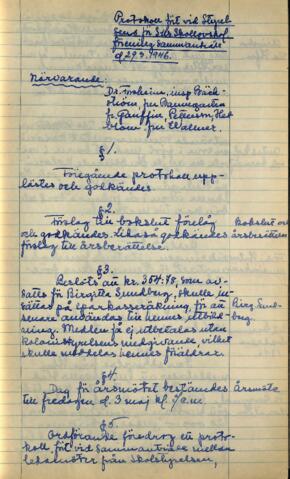 Protokoll fört vid Styrel-
sens för
förening sammanträde
d. 29.3. 1946.
Närvarande:
Dr. insp. Bäck-
ström, fru Baumgarten
fr. Pettersson,
blom fru Wallner.
§ 1.
Föregående protokoll upp-
lästes och godkändes
§ 2.
Förslag till bokslut förelåg
och godkändes. Likaså godkändes
förslag till årsberättelse.
Bokslut och
årsberättelse
§ 3.
Beslöts att kr. 364:78, som av-
satts för Birgitta Sundberg, skulle in-
sättas på sparkasseräkning, för att
senare användas till hennes utbild-
ning. Medlen få ej utbetalas utan
styrelsens medgivande, vilket
skulle meddelas hennes föräldrar.
Birg. Sund-
berg.
§ 4.
Dag för årsmötet bestämdes
till fredagen d. 3 maj kl.
Årsmöte
§ 5.
Ordförande föredrog ett proto-
koll, fört vid sammanträde mellan
ledamöter från Skolstyrelsen,